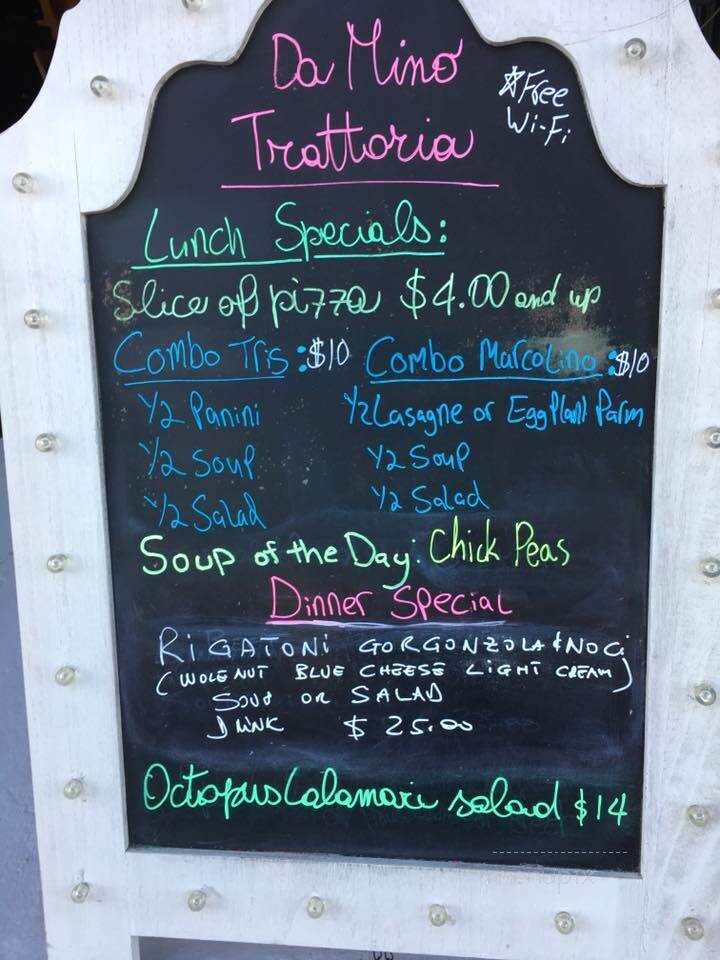 Da Mino
☆Free
Wi-Fi
Trattoria
Lunch Specials:
Slice of pizza $4.00 and up
Combo Tris: $10 Combo Marcolino: $10
1/2 Panini 1/2 Lasagne or EggPlant Parm
1/2 Soup 1/2 Soup
1/2 Salad 1/2 Salad
Soup of the Day: Chick Peas
Dinner Special
RIGATONI GORGONZOLA & NOCI
(WOLENUT BLUE CHEESE LIGHT CREAM)
SOUP OR SALAD
DRINK $25.00
Octopus Calamari salad $14